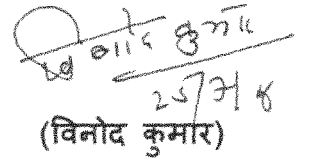 विनोद कुमार
25/7/8
(विनोद कुमार)